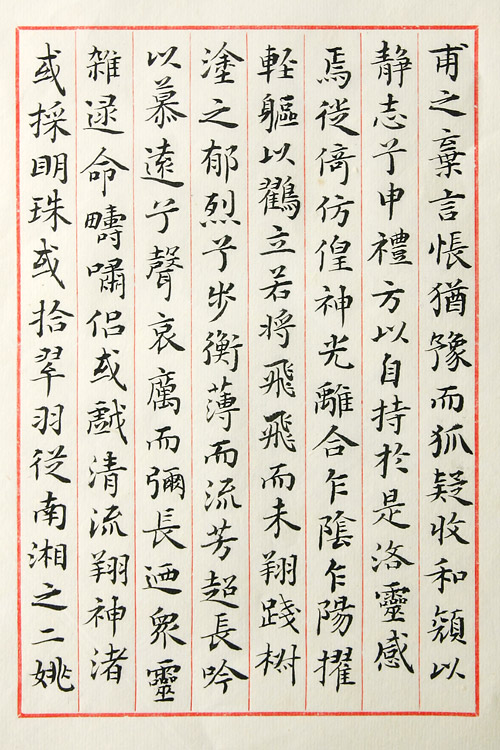 甫之棄言悵猶豫而狐疑收和顏以
静志兮申禮方以自持於是洛靈感
焉徙倚仿偟神光離合乍陰乍陽擢
軽軀以鸖立若将飛飛而未翔踐椒
塗之郁烈兮步衡薄而流芳超長吟
以慕遠兮聲哀厲而彌長迺衆靈
雑遝命疇嘯侣或戯清流翔神渚
或採明珠或拾翠羽従南湘之二姚